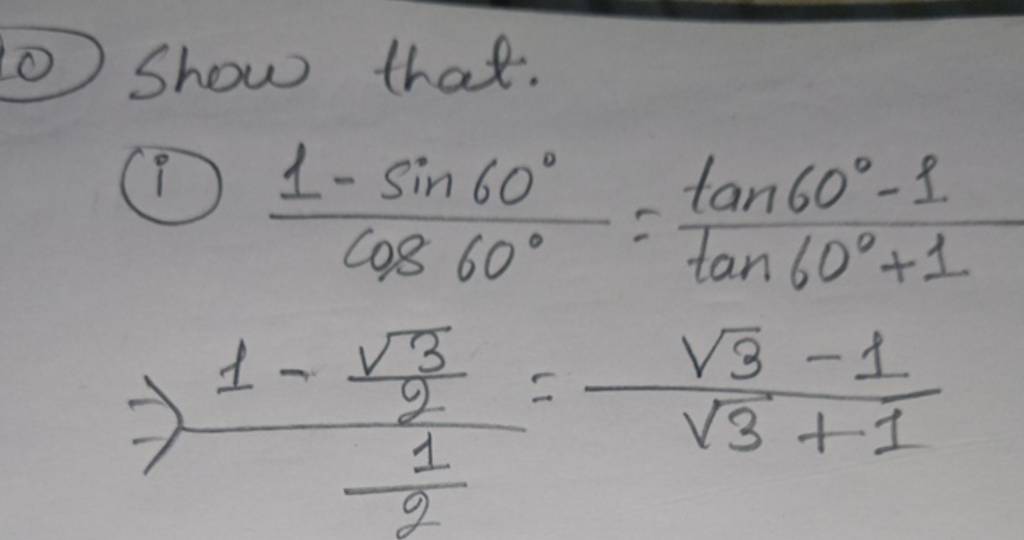 10 Show that.
(i) (1 - sin 60°)/(cos 60°) = (tan 60° - 1)/(tan 60° + 1)
⇒ (1 - √3/2)/(1/2) = (√3 - 1)/(√3 + 1)